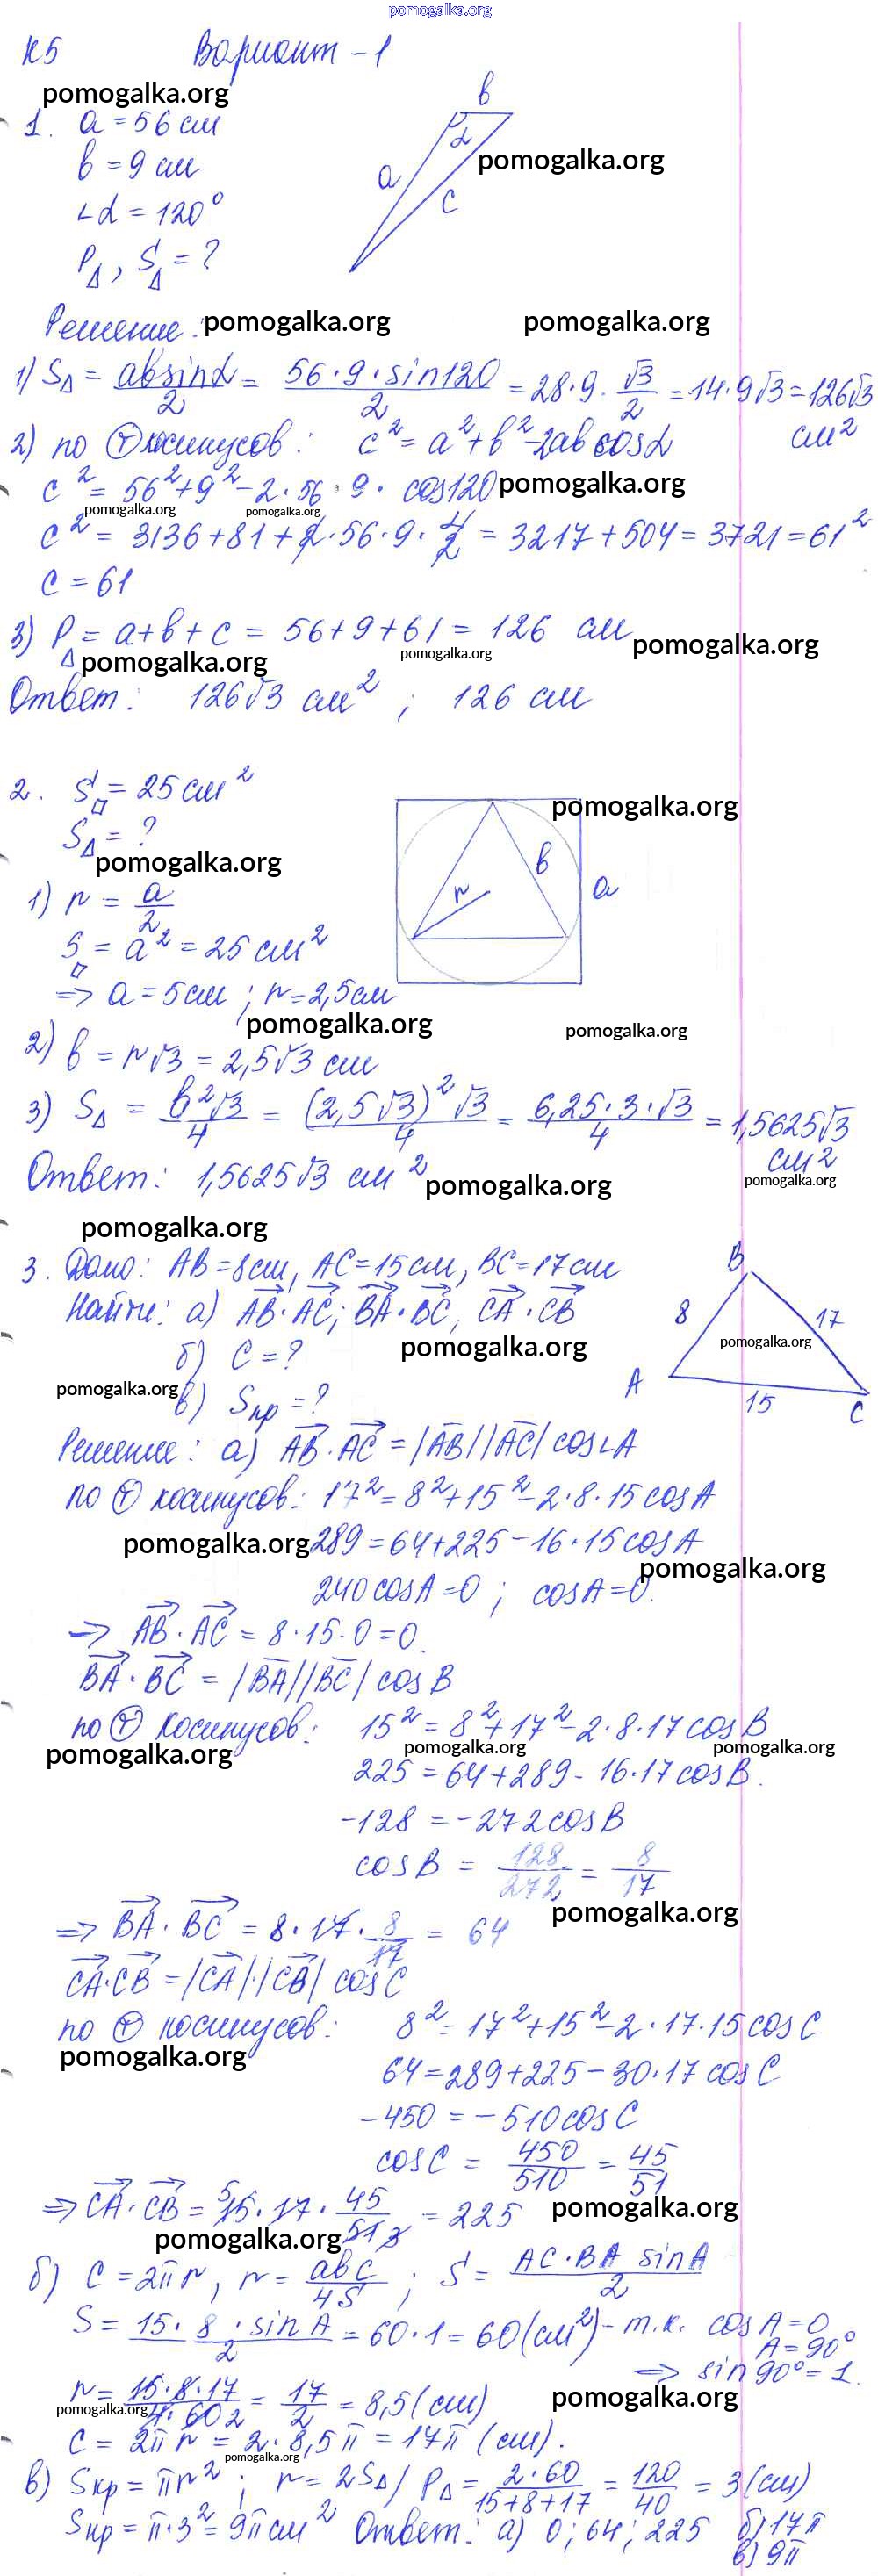 pomogalka.org
К5 Вариант - 1
pomogalka.org
1. a = 56 см
b
b = 9 см
α
pomogalka.org
a
∠α = 120°
c
P△, S△ = ?
Решение: pomogalka.org pomogalka.org
1) S△ = ab sinα / 2 = 56·9·sin120 / 2 = 28·9·√3/2 = 14·9√3 = 126√3 см²
2) по (т) косинусов: c² = a² + b² - 2ab cosα
c² = 56² + 9² - 2·56·9·cos120 pomogalka.org
pomogalka.org pomogalka.org
c² = 3136 + 81 + 2·56·9·1/2 = 3217 + 504 = 3721 = 61²
c = 61
3) P△ = a + b + c = 56 + 9 + 61 = 126 см
pomogalka.org pomogalka.org pomogalka.org
Ответ: 126√3 см²; 126 см
2. S□ = 25 см²
pomogalka.org
S△ = ?
pomogalka.org
b
a
r
1) r = a/2
S□ = a² = 25 см²
=> a = 5 см; r = 2,5 см
pomogalka.org pomogalka.org
2) b = r√3 = 2,5√3 см
3) S△ = b²√3/4 = (2,5√3)²√3/4 = 6,25·3·√3/4 = 1,5625√3 см²
Ответ: 1,5625√3 см² pomogalka.org pomogalka.org
pomogalka.org
3. Дано: AB = 8 см, AC = 15 см, BC = 17 см
B
8
17
A
15
C
pomogalka.org
Найти: а) AB·AC; BA·BC, CA·CB
б) C = ? pomogalka.org
pomogalka.org в) Sкр = ?
Решение: а) AB·AC = |AB||AC| cos∠A
по (т) косинусов: 17² = 8² + 15² - 2·8·15 cosA
pomogalka.org 289 = 64 + 225 - 16·15 cosA
pomogalka.org
240 cosA = 0; cosA = 0.
=> AB·AC = 8·15·0 = 0.
BA·BC = |BA||BC| cosB
по (т) косинусов: 15² = 8² + 17² - 2·8·17 cosB
pomogalka.org pomogalka.org pomogalka.org
225 = 64 + 289 - 16·17 cosB.
-128 = -272 cosB
cosB = 128/272 = 8/17
pomogalka.org
=> BA·BC = 8·17·8/17 = 64
CA·CB = |CA|·|CB| cosC
по (т) косинусов: 8² = 17² + 15² - 2·17·15 cosC
pomogalka.org
64 = 289 + 225 - 30·17 cosC
-450 = -510 cosC
cosC = 450/510 = 45/51
=> CA·CB = 15·17·45/51 = 225 pomogalka.org
5
3
pomogalka.org
б) C = 2πr, r = abc/4S; S = AC·BA sinA / 2
S = 15·8·sinA / 2 = 60·1 = 60 (см²) - т.к. cosA = 0
A = 90°
=> sin90° = 1.
r = 15·8·17 / 4·60 2 = 17/2 = 8,5 (см)
pomogalka.org pomogalka.org
C = 2πr = 2·8,5π = 17π (см).
pomogalka.org
в) Sкр = πr²; r = 2S△/P△ = 2·60 / 15+8+17 = 120/40 = 3 (см)
Sкр = π·3² = 9π см² Ответ: а) 0; 64; 225 б) 17π
в) 9π